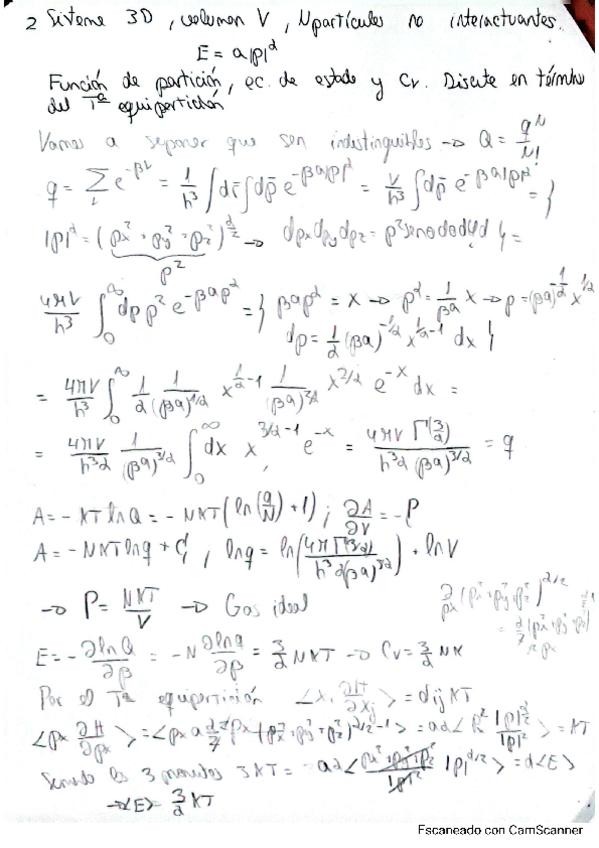 2 Sistema 3D, volumen V, N partículas no interactuantes.
E = a|p|^α
Función de partición, ec. de estado y Cv. Discute en términos
del Tª equipartición
Vamos a suponer que son indistinguibles → Q = q^N/N!
q = Σ_i e^{-βE_i} = 1/h³ ∫dr̄ ∫dp̄ e^{-βa|p|^α} = V/h³ ∫dp̄ e^{-βa|p|^α} = }
|p|^α = (px² + py² + pz²)^{α/2} → dpx dpy dpz = p² senθ dθ dφ d } =
p²
4πV/h³ ∫_0^∞ dp p² e^{-βap^α} = { βap^α = x → p^α = 1/βa x → p = (βa)^{-1/α} x^{1/α}
dp = 1/α (βa)^{-1/α} x^{1/α-1} dx }
= 4πV/h³ ∫_0^∞ 1/α 1/(βa)^{1/α} x^{1/α-1} 1/(βa)^{2/α} x^{2/α} e^{-x} dx =
= 4πV/h³α 1/(βa)^{3/α} ∫_0^∞ dx x^{3/α-1} e^{-x} = 4πV Γ(3/α) / h³α (βa)^{3/α} = q
A = -KT ln Q = -NKT (ln(q/N) + 1) ; ∂A/∂V = -P
A = -NKT ln q + C, ln q = ln(4πΓ(3/α) / h³α(βa)^{3/α}) + ln V
→ P = NKT/V → Gas ideal
∂/∂px (px² + py² + pz²)^{α/2}
= α/2 (px² + py² + pz²)
2px
E = -∂lnQ/∂β = -N ∂lnq/∂β = 3/α NKT → Cv = 3/α NK
Por el Tª equipartición <x_i ∂H/∂x_j> = δij KT
<px ∂H/∂px> = <px a α/2 2px (px² + py² + pz²)^{α/2-1}> = aα <px² |p|^α/|p|²> = KT
Sumando los 3 momentos 3KT = aα <px² + py² + pz² / |p|² |p|^α> = α<E>
→ <E> = 3/α KT
Escaneado con CamScanner